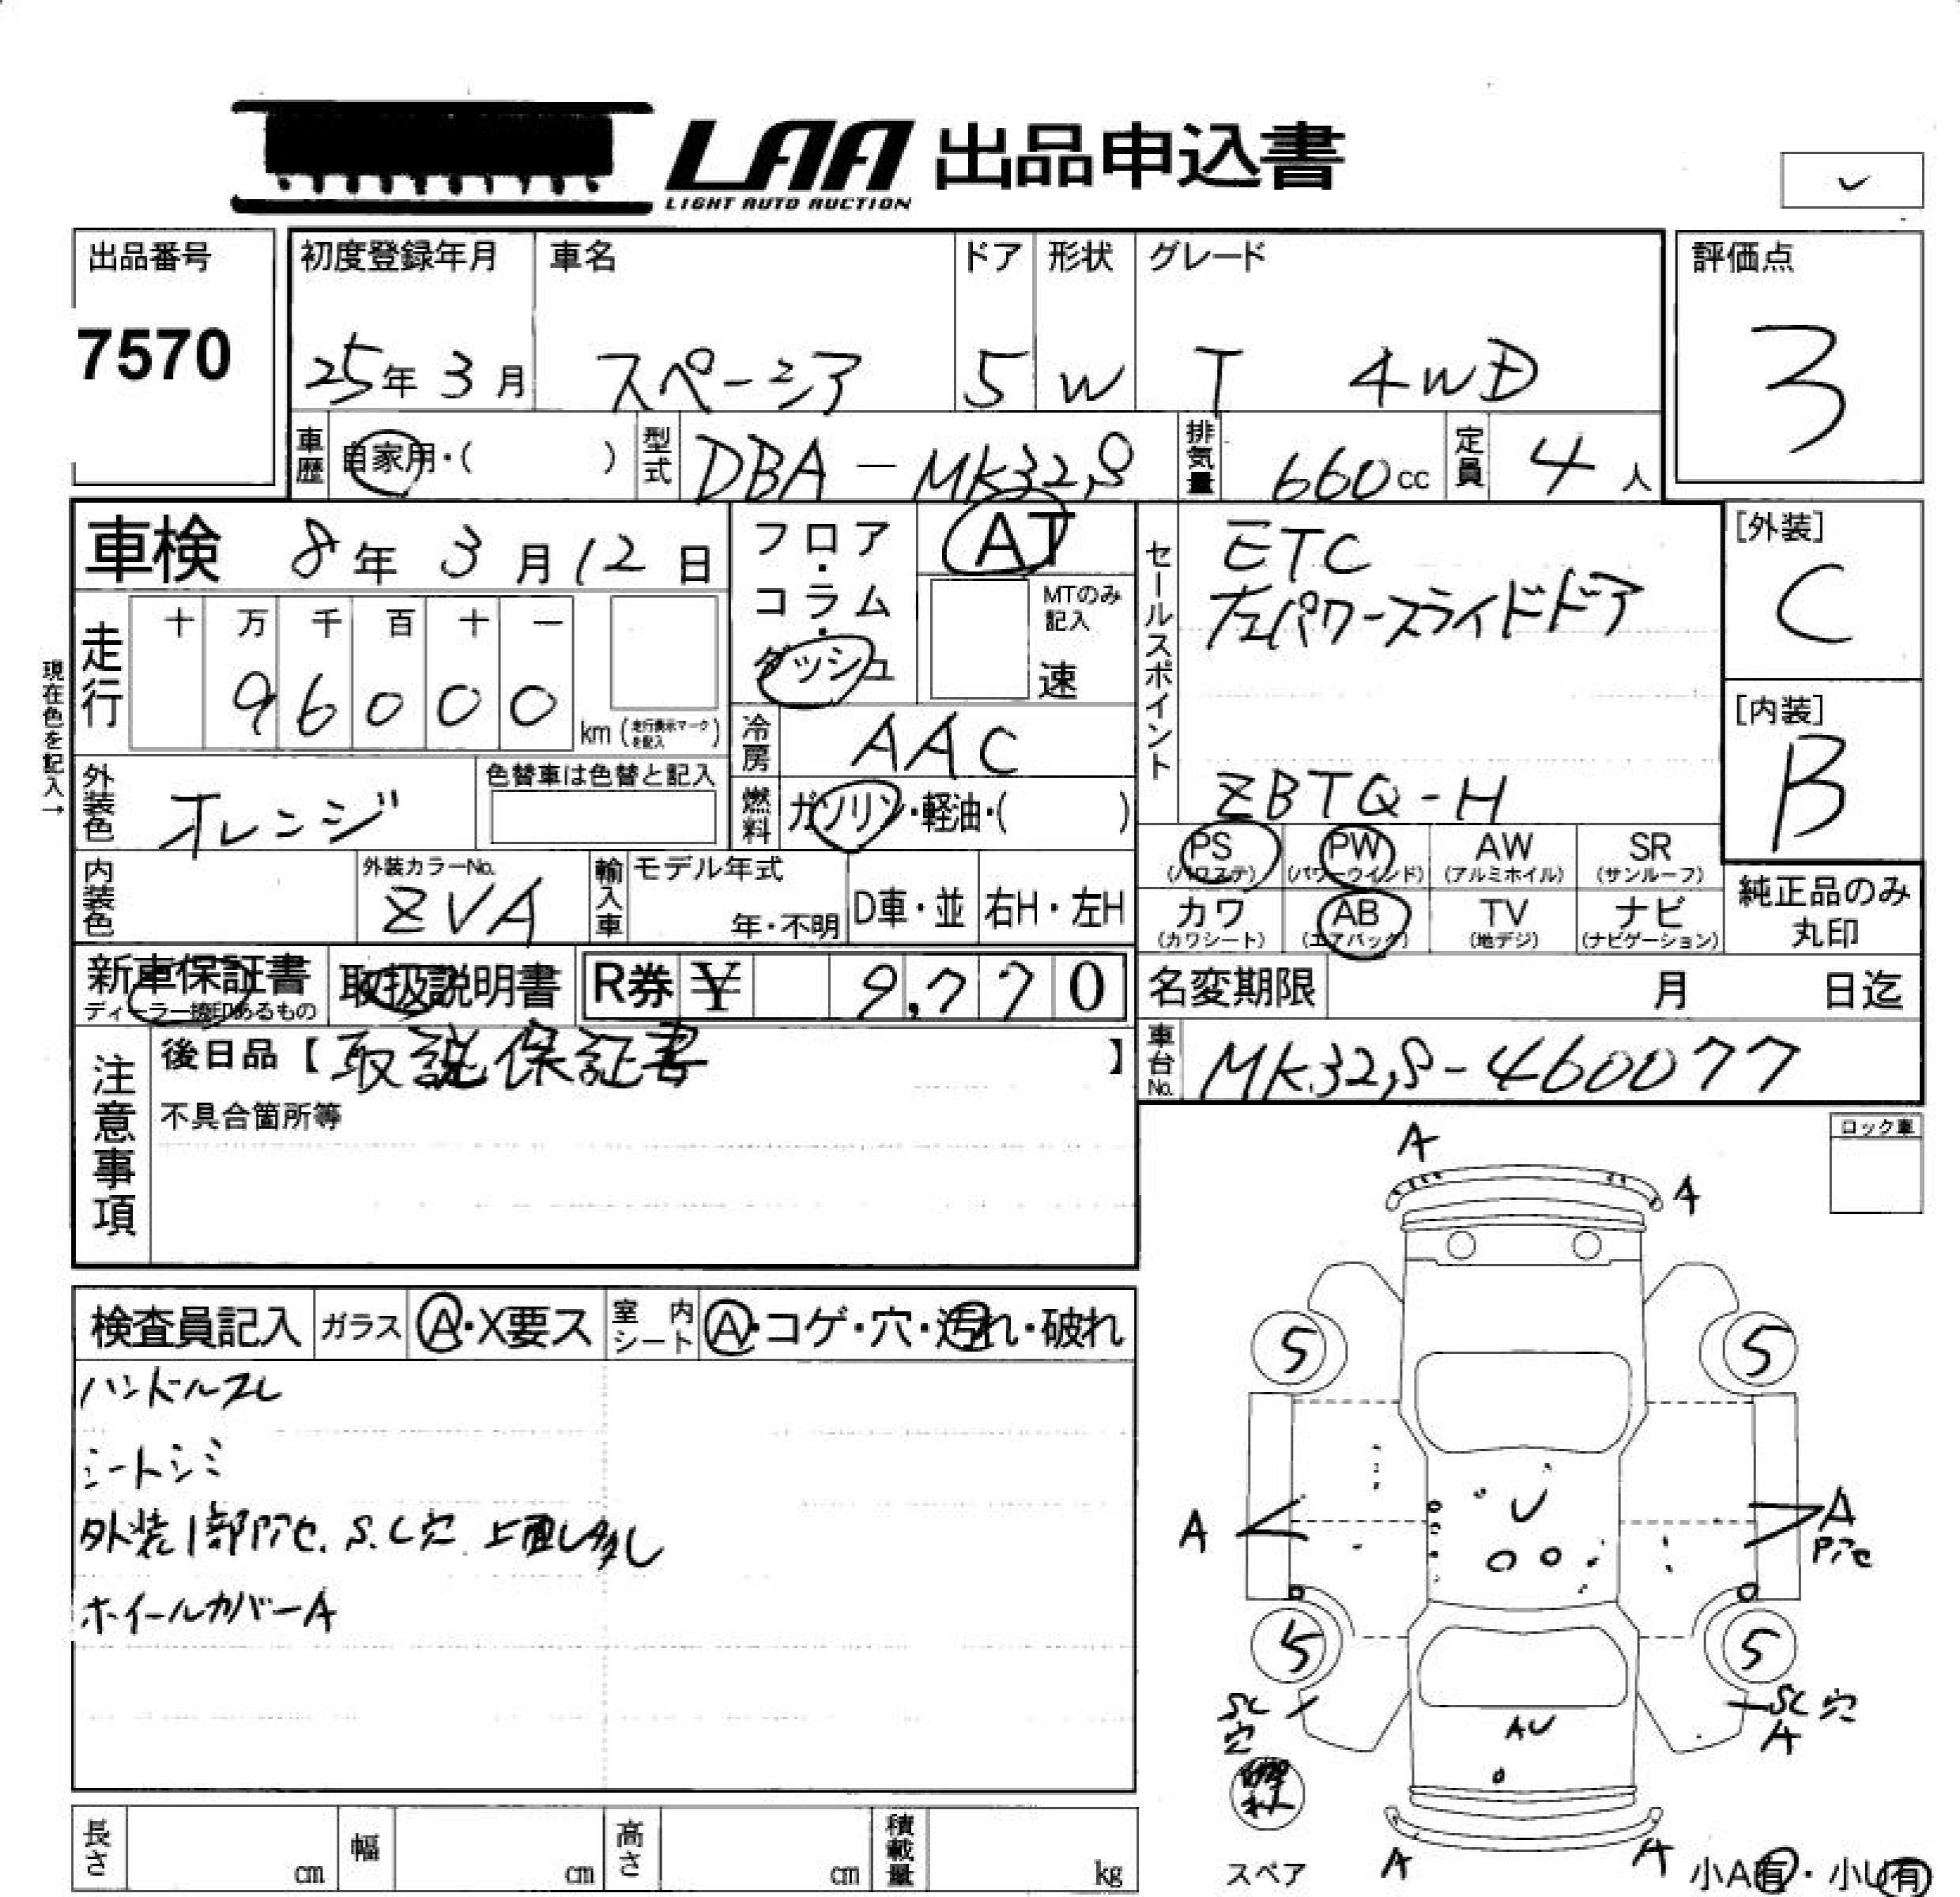 LAA 出品申込書
LIGHT AUTO AUCTION
出品番号
7570
初度登録年月
25年 3月
車名
スペーシア
ドア
5
形状
W
グレード
T 4WD
評価点
3
車歴
自家用・( )
型式
DBA-MK32S
排気量
660cc
定員
4人
車検 8年 3月 12日
フロア・コラム・ダッシュ
AT
MTのみ記入
速
走行
十 万 千 百 十 一
9 6 0 0 0
km (走行表示マークを記入)
現在色を記入→
冷房
AAC
外装色
オレンジ
色替車は色替と記入
燃料
ガソリン・軽油・( )
内装色
外装カラーNo.
ZVA
輸入車
モデル年式
年・不明
D車・並
右H・左H
セールスポイント
ETC
左パワースライドドア
ZBTQ-H
[外装]
C
[内装]
B
PS (パワステ)
PW (パワーウインド)
AW (アルミホイル)
SR (サンルーフ)
カワ (カワシート)
AB (エアバック)
TV (地デジ)
ナビ (ナビゲーション)
純正品のみ丸印
新車保証書
ディーラー捺印あるもの
取扱説明書
R券 ¥ 9,770
名変期限 月 日迄
車台No.
MK32S-460077
注意事項
後日品【取説保証書】
不具合箇所等
ロック車
検査員記入
ガラス
A・X要ス
室内シート
A・コゲ・穴・汚れ・破れ
ハンドルスレ
シートシミ
外装1部P7c. S.C穴 上面しみ多し
ホイールカバーA
A
A
5
5
U
A
A
P7c
5
5
SC
穴
SC穴
A
AU
スペア
A
A
小A有・小U有
長さ cm
幅 cm
高さ cm
積載量 kg